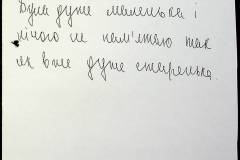 Була дуже маленька і
нічого не пам'ятаю так
як вже дуже старенька.